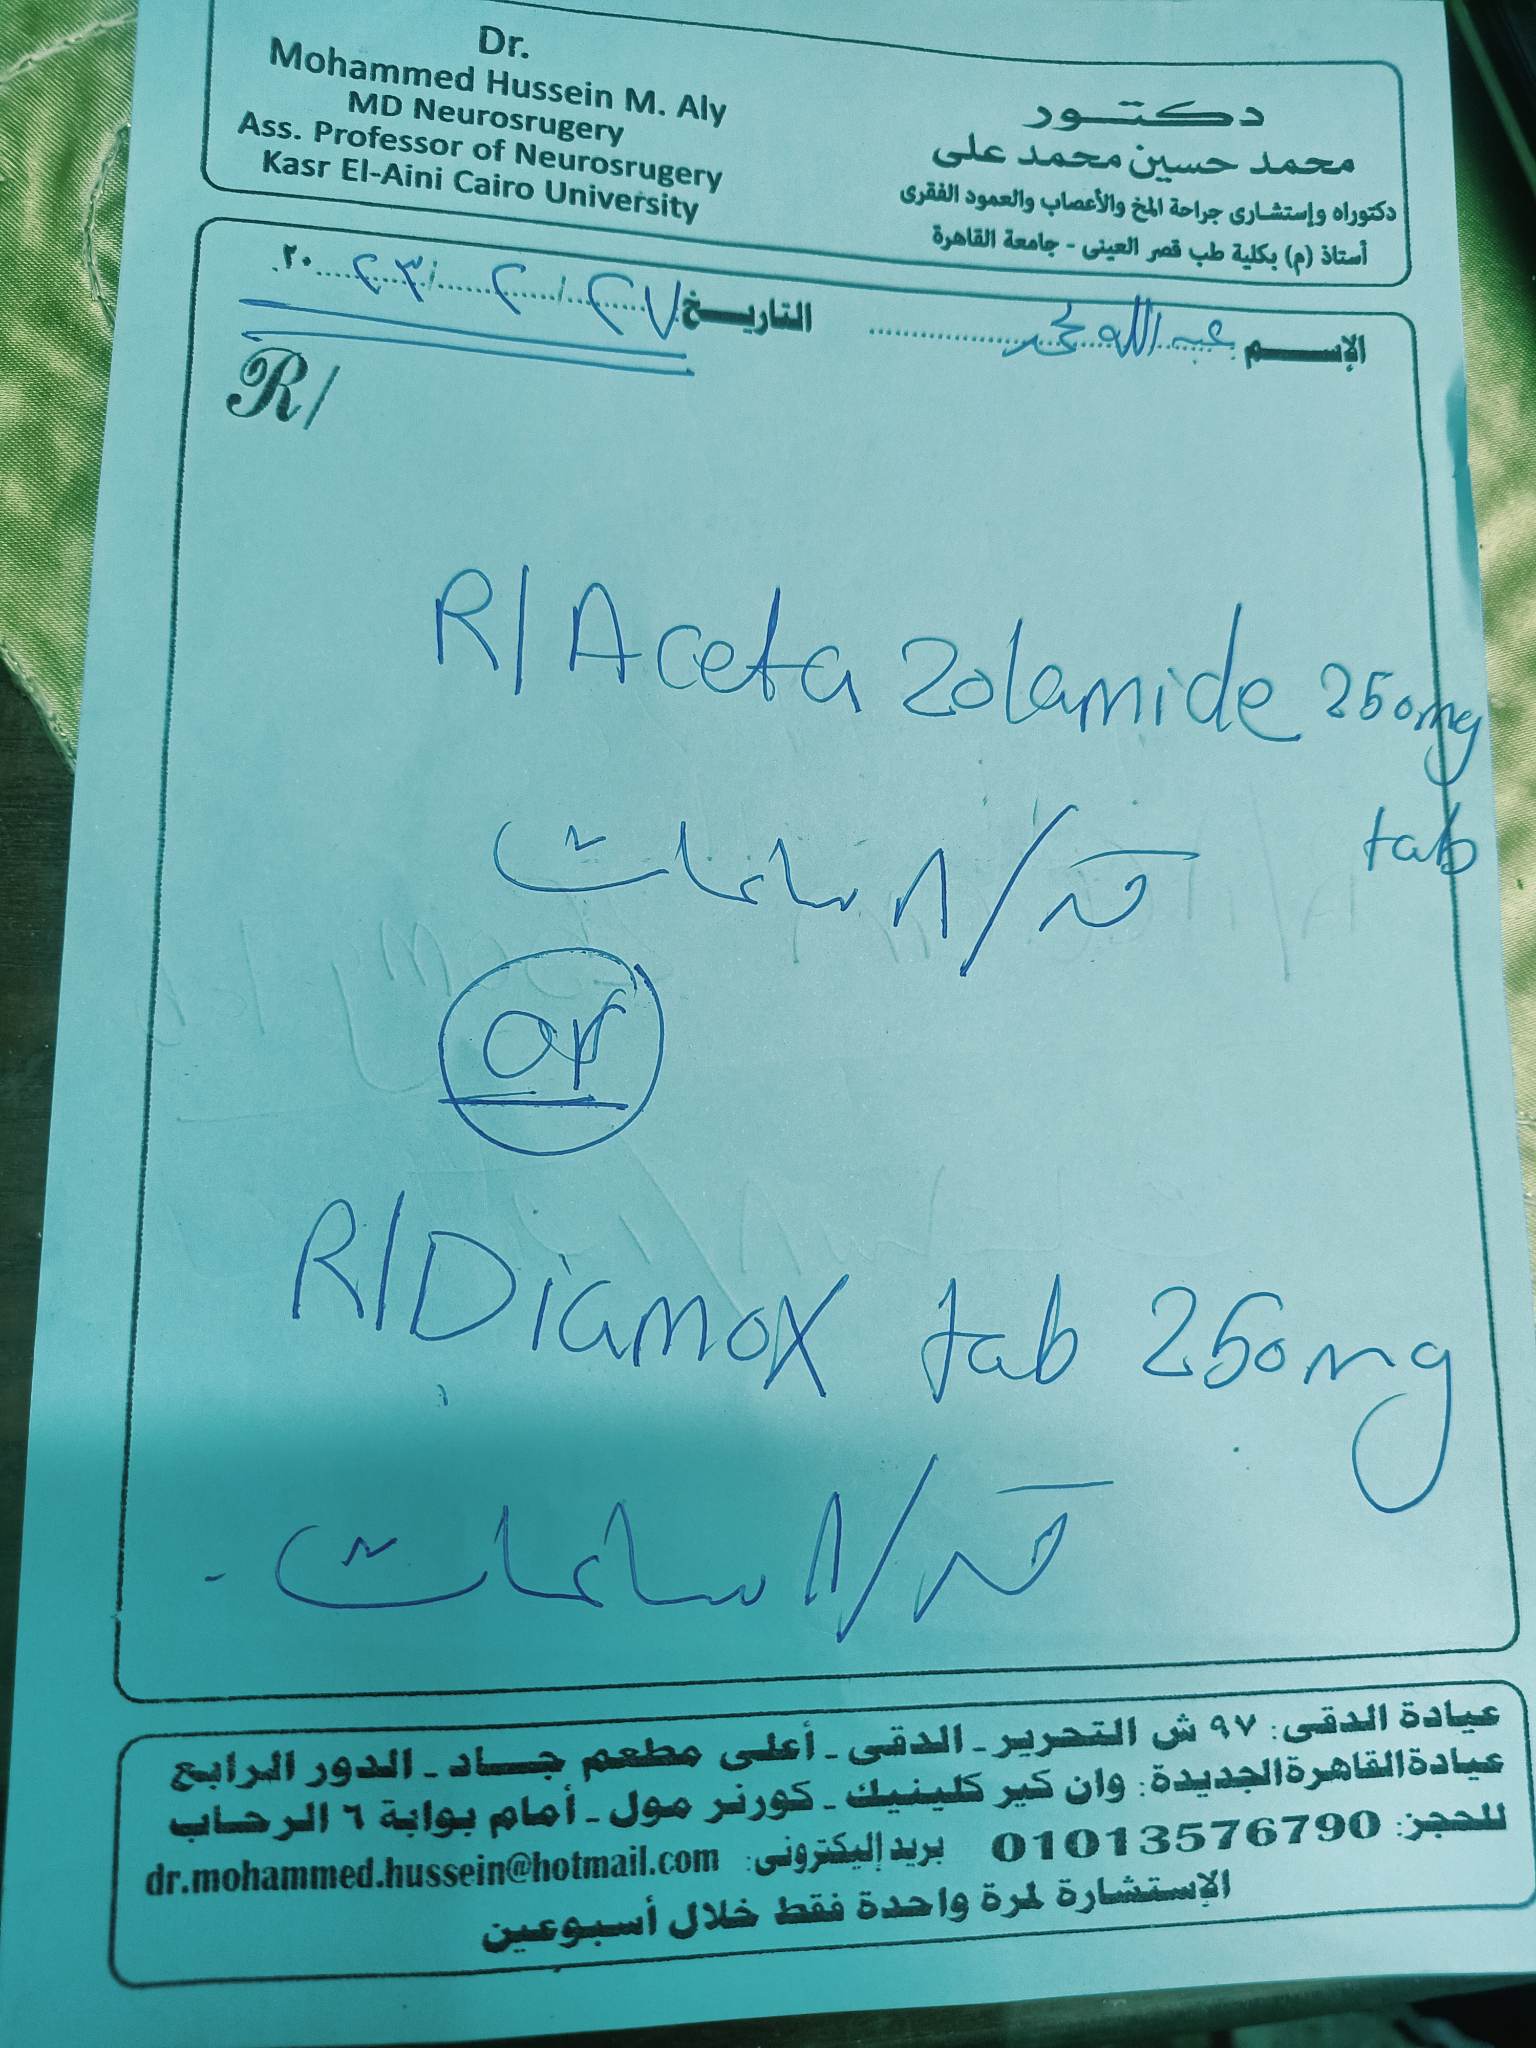 Dr.
Mohammed Hussein M. Aly
MD Neurosrugery
Ass. Professor of Neurosrugery
Kasr El-Aini Cairo University
دكتور
محمد حسين محمد على
دكتوراه وإستشارى جراحة المخ والأعصاب والعمود الفقرى
أستاذ (م) بكلية طب قصر العينى - جامعة القاهرة
الإسم عبد الله محمد التاريخ ٢٧ / ٢ / ٢٠٢٣
R/
R/ Acetazolamide 250mg
tab
قرص / ٨ ساعات
or
R/ Diamox tab 250mg
قرص / ٨ ساعات
عيادة الدقى: ٩٧ ش التحرير - الدقى - أعلى مطعم جاد - الدور الرابع
عيادة القاهرة الجديدة: وان كير كلينيك - كورنر مول - أمام بوابة ٦ الرحاب
للحجز: 01013576790 بريد إليكترونى: dr.mohammed.hussein@hotmail.com
الإستشارة لمرة واحدة فقط خلال أسبوعين